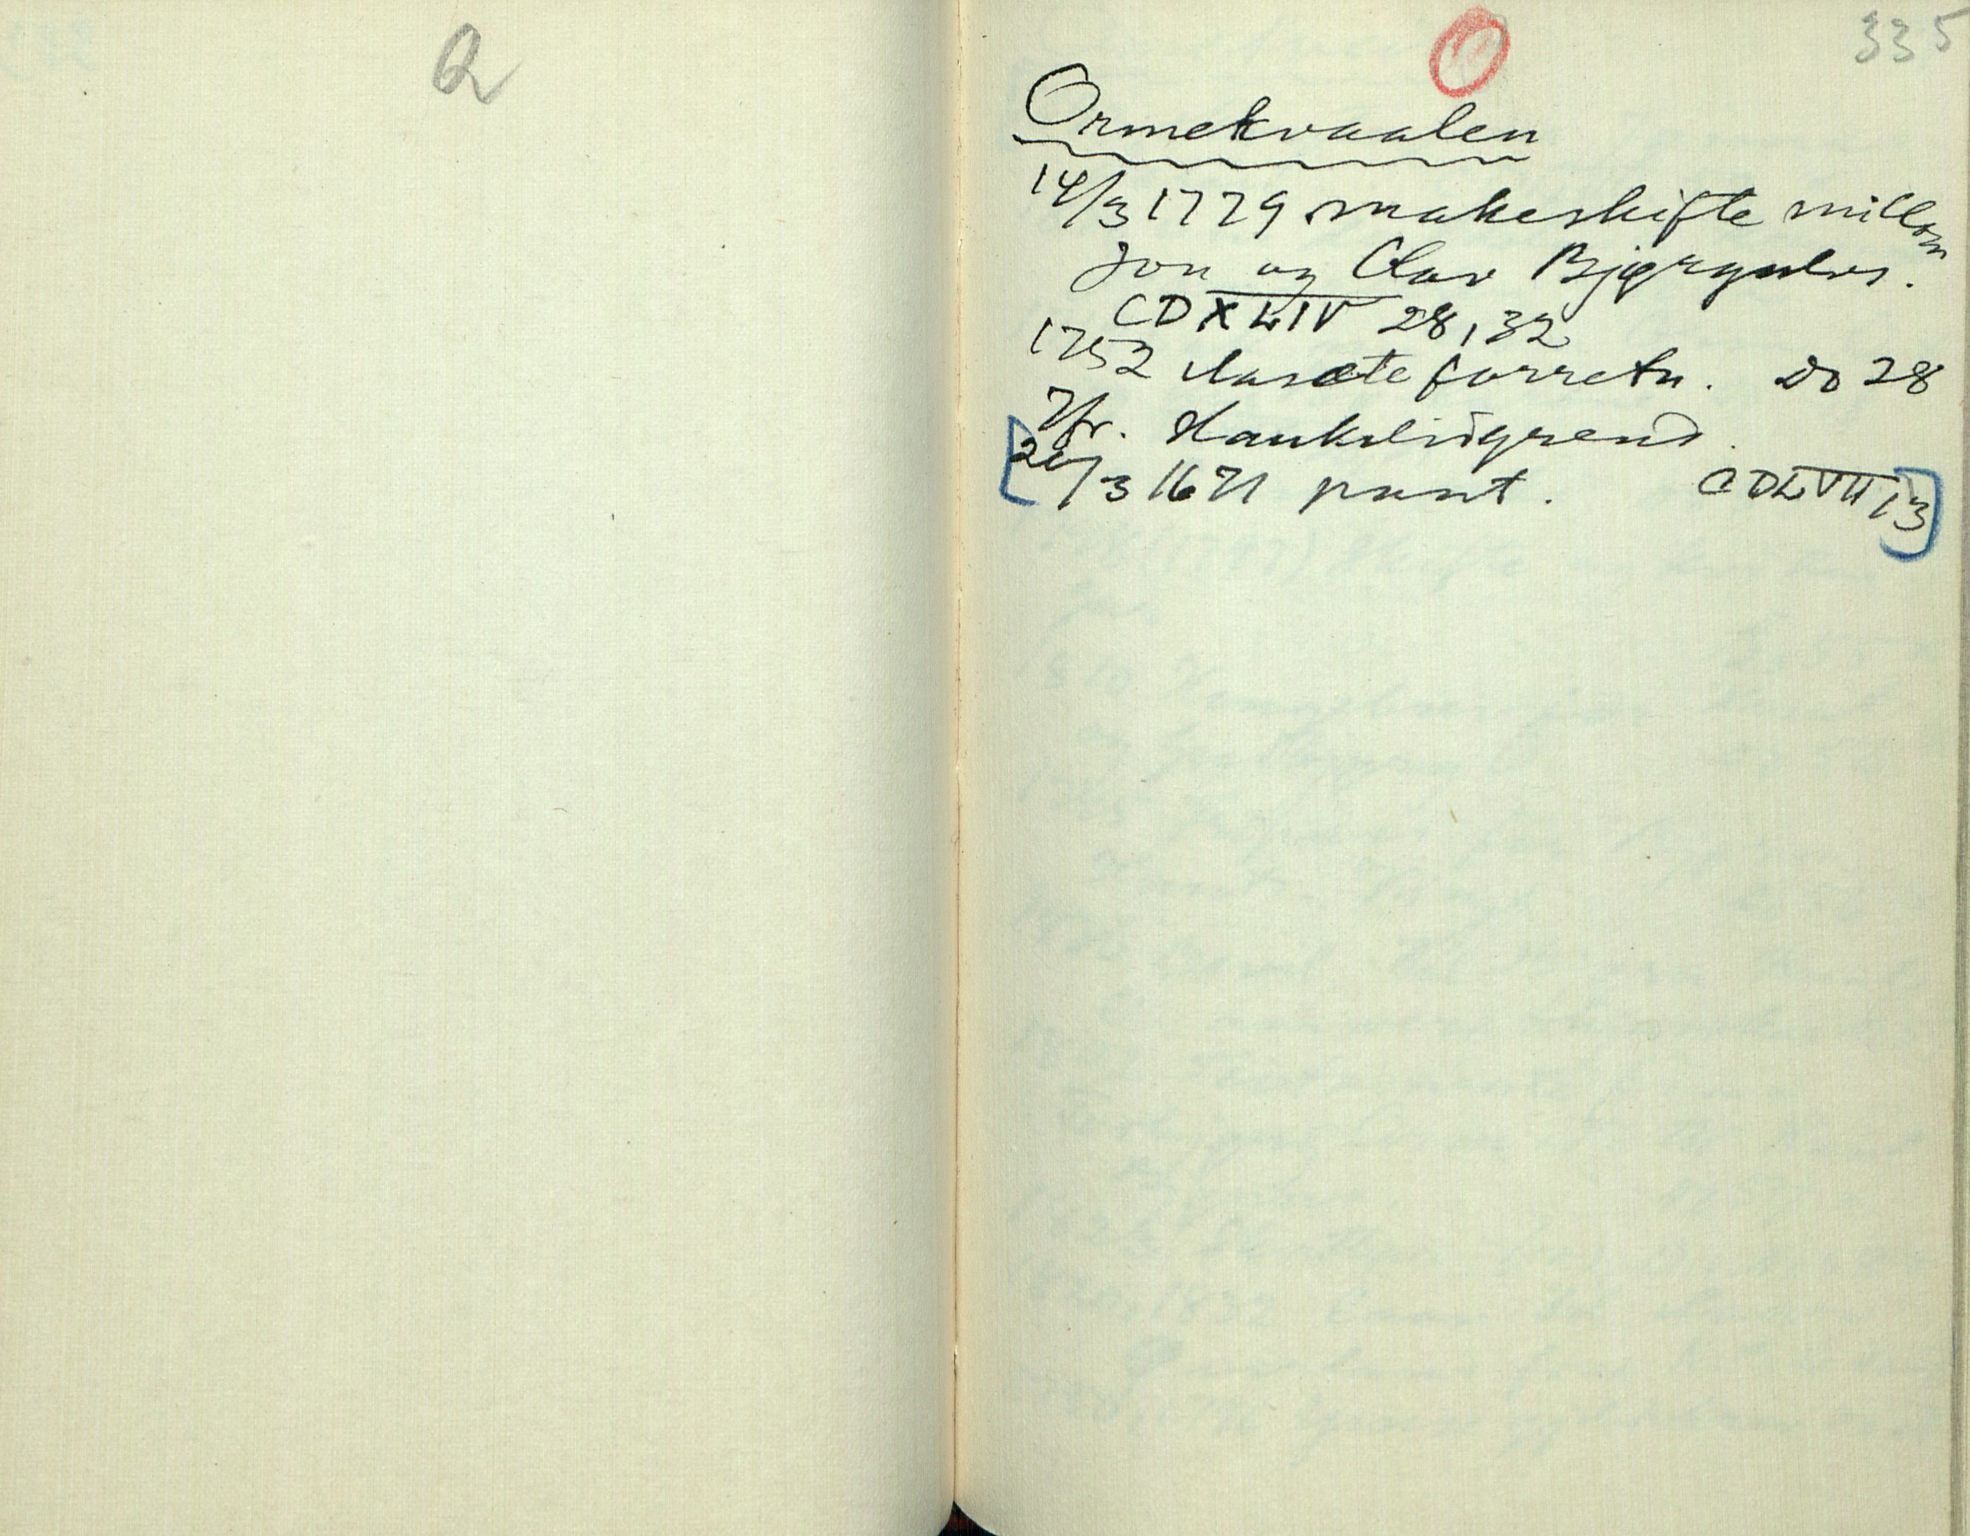 Q
O
335
Ormekvaalen
14/3 1779 makeskifte millom
Jon og Olav Bjørgulvs.
CDXLIV 28, 32
1752 Aasæteforretn. Do 28
Jfr. Haukeligrend.
[20/3 1671 pant. CDLVII 13]